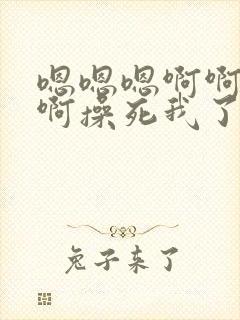 嗯嗯嗯啊啊
啊操死我了
兔子来了